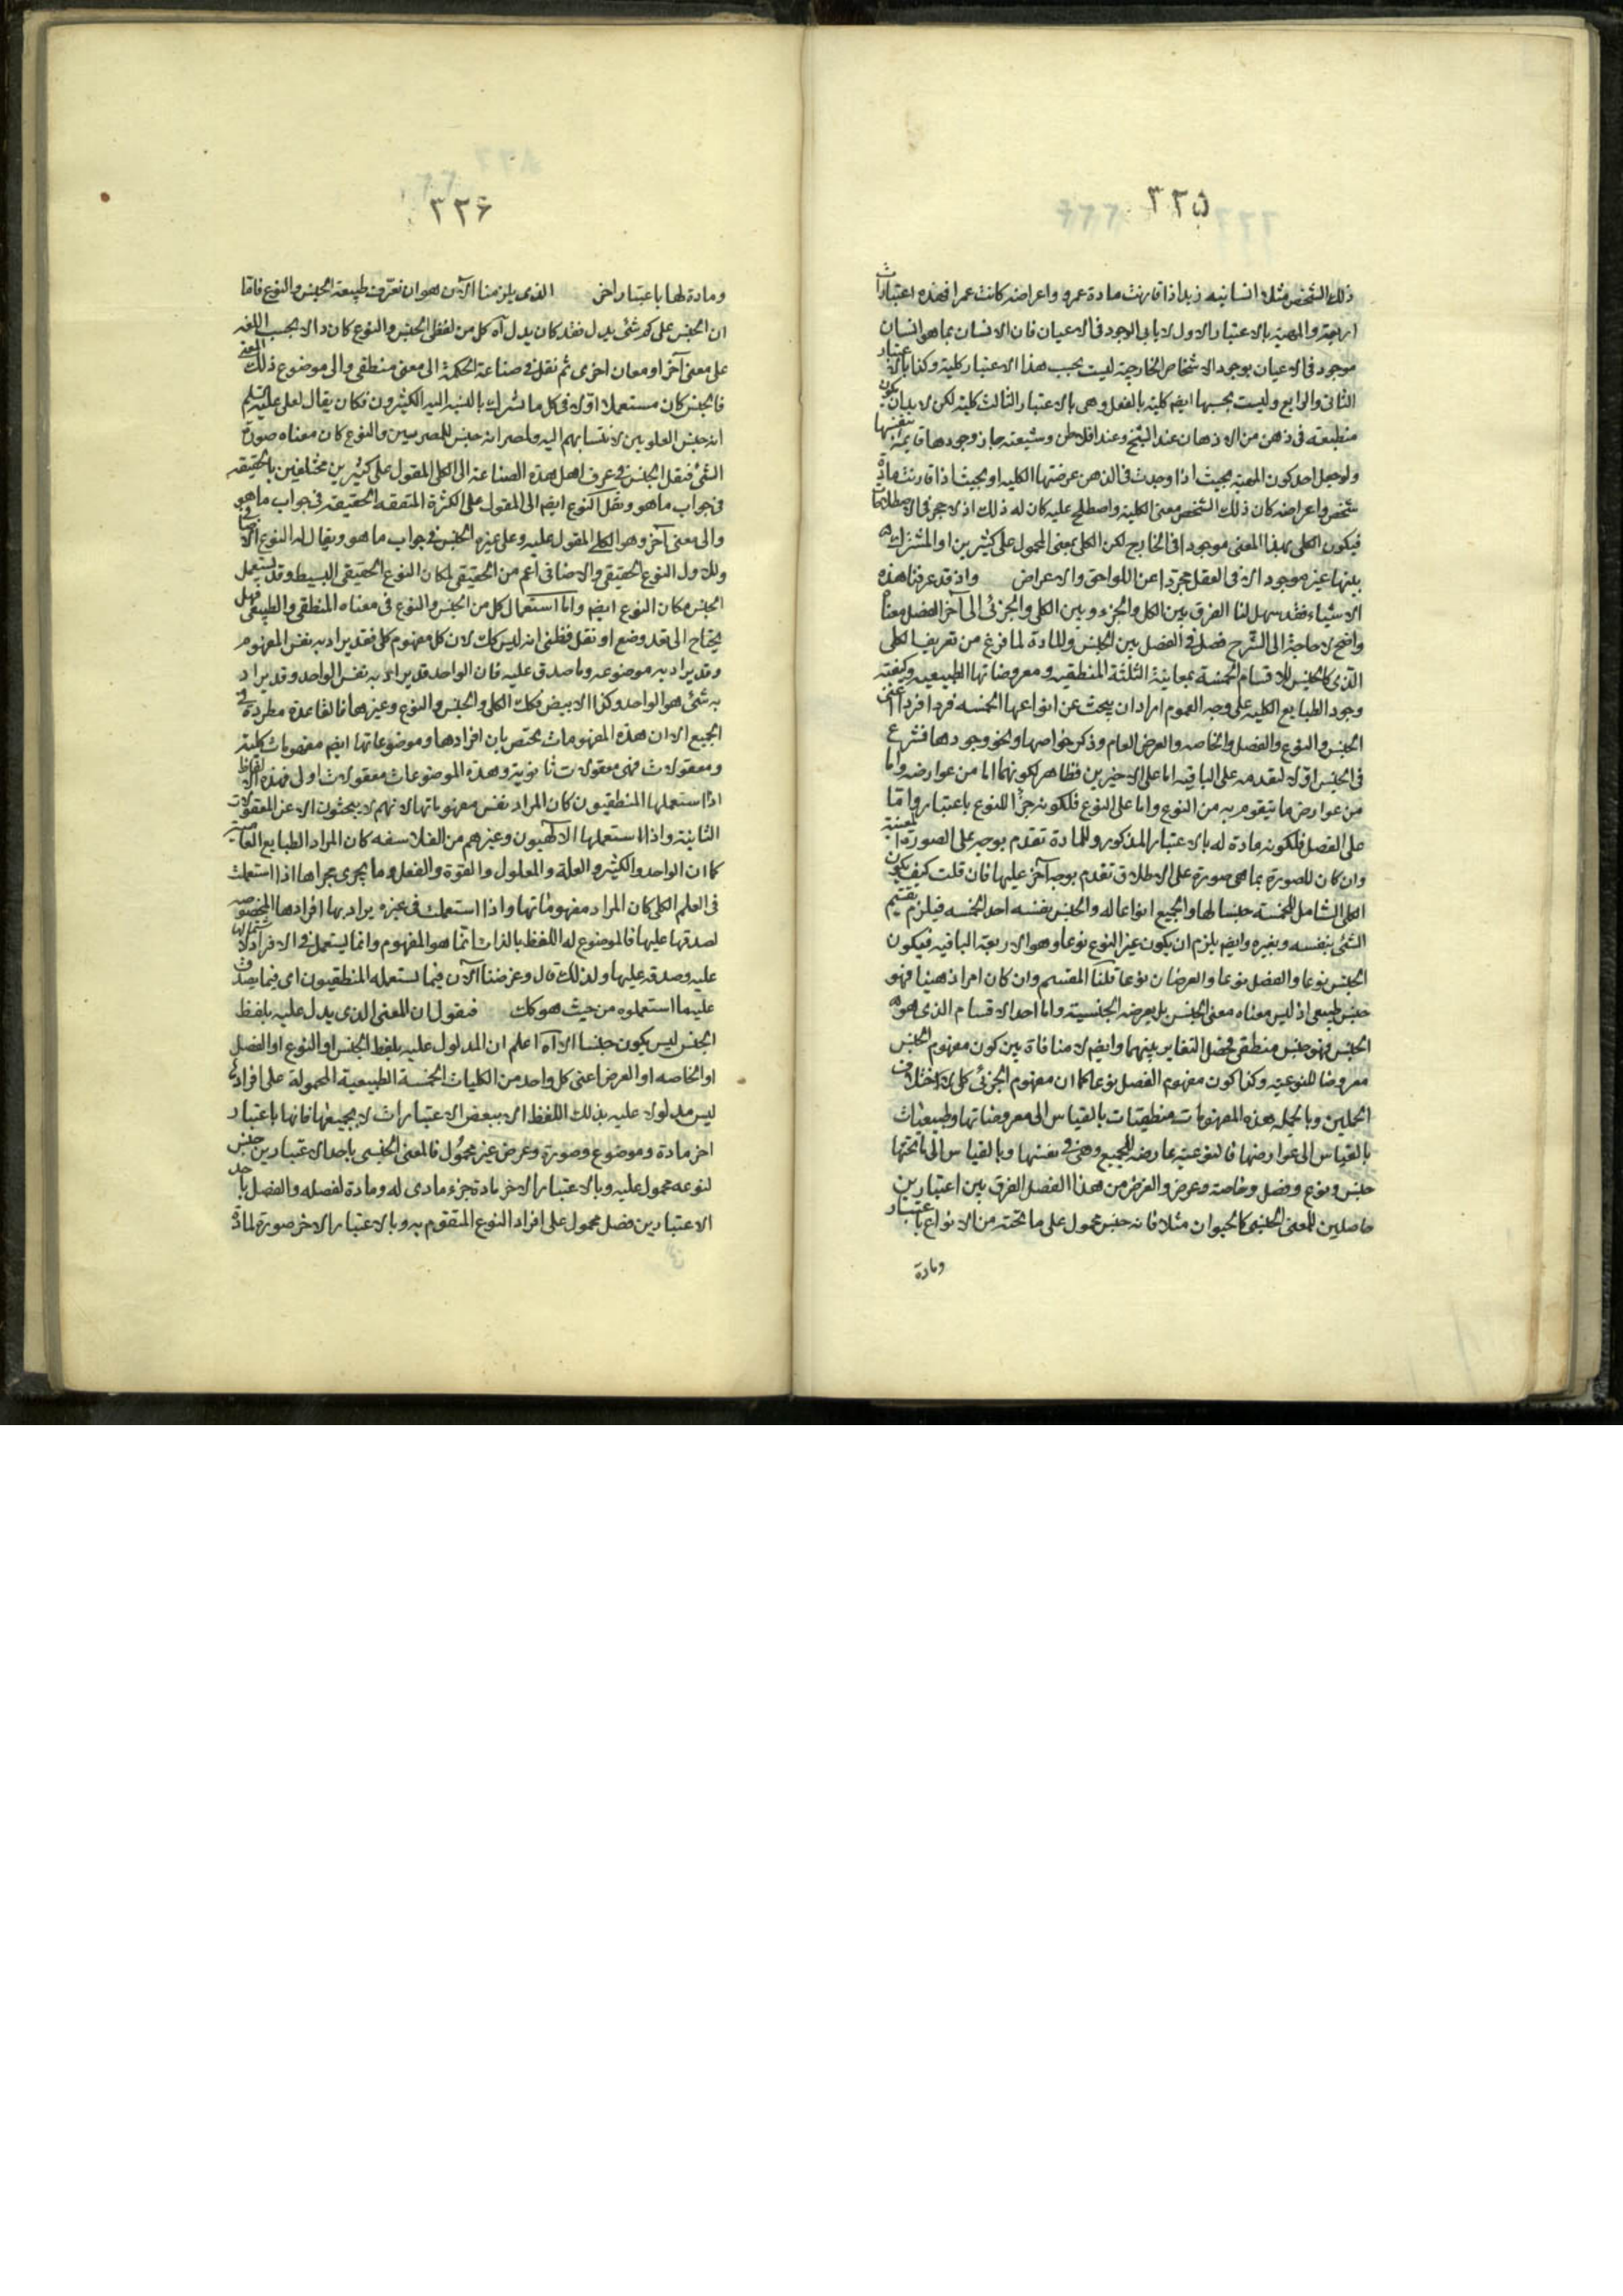 ٣٢٥
ذلك الشخص مثلا انسانيه زيد اذا قارنت مادة عمرو واعراضه كانت عمرا فهذه اعتبارات
اربعة والمهية بالاعتبار الاول لا يابى الوجود فى الاعيان فان الانسان بما هو انسان
موجود فى الاعيان بوجود الاشخاص الخارجية ليست بحسب هذا الاعتبار كلية وكذا بالاعتبار
الثانى والرابع وليست بحسبها ايضم كلية بالفعل وهى بالاعتبار الثالث كلية لكن لا بد ان يكون
منطبعة فى ذهن من الاذهان عند الشيخ وعند افلاطن وشيعته جاز وجودها قايمة بنفسها
ولو جعل احد كون المهية بحيث اذا وجدت فى الذهن عرضتها الكلية او بحيث اذا قارنت مادة
شخص واعراضه كان ذلك الشخص معنى الكلية واصطلح عليه كان له ذلك اذ لا حجر فى الاصطلاحات
فيكون الكلى بهذا المعنى موجودا فى الخارج لكن الكلى بمعنى المحمول على كثيرين او المشترك
بينها غير موجود الا فى العقل مجردا عن اللواحق والاعراض واذ قد عرفنا هذه
الاشياء فقد سهل لنا الفرق بين الكل والجزء وبين الكلى والجزئى الى آخر الفصل معناه
واضح لا حاجة الى الشرح فصل فى الفصل بين الجنس والمادة لما فرغ من تعريف الكلى
الذى كالجنس للاقسام الخمسة بمعانية الثلثة المنطقيه ومعروضاتها الطبيعيه وكيفية
وجود الطبايع الكلية على وجه العموم اراد ان يبحث عن انواعها الخمسه فردا فردا اعنى
الجنس والنوع والفصل والخاصه والعرض العام وذكر خواصها ونحو وجودها فشرع
فى الجنس اولا لتقدمه على الباقيه اما على الاخيرين فظاهر لكونهما اما من عوارضه واما
من عوارض ما يتقوم به من النوع واما على النوع فلكونه جزأ للنوع باعتبار واما
على الفصل فلكونه مادة له بالاعتبار المذكور وللمادة تقدم بوجه على الصورة المعينة
وان كان للصورة بما هى صورة على الاطلاق تقدم بوجه آخر عليها فان قلت كيف يكون
الكلى الشامل للخمسة جنسا لها والجميع انواعا له والجنس بنفسه احد الخمسه فيلزم تقسيم
الشئ بنفسه وبغيره وايضم يلزم ان يكون غير النوع نوعا وهو الاربعة الباقيه فيكون
الجنس نوعا والفصل نوعا والعرضان نوعا قلنا المقسم وان كان امرا ذهنيا فهو
جنس طبيعى اذ ليس معناه معنى الجنس بل يعرضه الجنسية واما احد الاقسام الذى هو
الجنس فهو جنس منطقى فحصل التغاير بينهما وايضم لا منافاة بين كون مفهوم الجنس
معروضا للنوعية وكذا كون مفهوم الفصل نوعا كما ان مفهوم الجزئى كلى لاختلاف
الحملين وبالجمله هذه المفهومات منطقيات بالقياس الى معروضاتها وطبيعيات
بالقياس الى عوارضها فالنوعية عارضه للجميع وهى فى نفسها وبالقياس الى ما تحتها
جنس ونوع وفصل وخاصة وعرض والغرض من هذا الفصل الفرق بين اعتبارين
حاصلين للمعنى الجنسى كالحيوان مثلا فانه جنس محمول على ما تحته من الانواع باعتبار
ومادة
٣٢۶
ومادة لها باعتبار اخر الذى يلزمنا الآن هو ان نعرف طبيعة الجنس والنوع فاما
ان الجنس على كم شئ يدل فقد كان يدل آه كل من لفظى الجنس والنوع كان دالا بحسب اللغه
على معنى آخر او معان اخرى ثم نقل فى صناعة الحكمة الى معنى منطقى والى موضوع ذلك المعنى
فالجنس كان مستعملا اولا فى كل ما تشرك بالنسبة اليه الكثيرون فكان يقال لعلى عليه السلم
انه جنس العلويين لانتسابهم اليه ولمصر انه جنس للمصريين والنوع كان معناه صورة
الشئ فنقل الجنس فى عرف اهل هذه الصناعة الى الكلى المقول على كثيرين مختلفين بالحقيقه
فى جواب ما هو ونقل النوع ايضم الى المقول على الكثرة المتفقه الحقيقه فى جواب ما هو
والى معنى آخر وهو الكلى المقول عليه وعلى غيره الجنس فى جواب ما هو ويقال له النوع الاضافى
وللاول النوع الحقيقى والاضافى اعم من الحقيقى لمكان النوع الحقيقى البسيط وقد يستعمل
الجنس مكان النوع ايضم واما استعمال كل من الجنس والنوع فى معناه المنطقى والطبيعى فهل
يحتاج الى تعدد وضع او نقل فظنى انه ليس كك لان كل مفهوم كلى فقد يراد به نفس المفهوم
وقد يراد به موضوعه وما صدق عليه فان الواحد قد يراد به نفس الواحد وقد يراد
به شئ هو الواحد وكذا الابيض فكك الكلى والجنس والنوع وغيرها فالقاعدة مطردة فى
الجميع الا ان هذه المفهومات يختص بان افرادها وموضوعاتها ايضم مفهومات كلية
ومعقولات فهى معقولات ثانويه وهذه الموضوعات معقولات اول فهذه الالفاظ
اذا استعملها المنطقيون كان المراد نفس مفهوماتها لانهم لا يبحثون الا عن المعقولات
الثانية واذا استعملها الالهيون وغيرهم من الفلاسفه كان المراد الطبايع العامة
كما ان الواحد والكثير والعلة والمعلول والقوة والفعل وما يجرى مجراها اذا استعملت
فى العلم الكلى كان المراد مفهوماتها واذا استعملت فى غيره يراد بها افرادها المخصوصه
لصدقها عليها فالموضوع له اللفظ بالذات انما هو المفهوم وانما يستعمل فى الافراد لاشتمالها
عليه وصدقه عليها ولذلك قال وغرضنا الآن فيما يستعمله المنطقيون اى فيما يصدق
عليه ما استعملوه من حيث هو كك فنقول ان المعنى الذى يدل عليه بلفظ
الجنس ليس يكون جنسا الا آه اعلم ان المدلول عليه بلفظ الجنس او النوع او الفصل
او الخاصه او العرض اعنى كل واحد من الكليات الخمسة الطبيعية المحمولة على افراده
ليس مدلولا عليه بذلك اللفظ الا ببعض الاعتبارات لا بجميعها فانها باعتبار
اخر مادة وموضوع وصورة وعرض غير محمول فالمعنى الجنسى باحد الاعتبارين جنس
لنوعه محمول عليه وبالاعتبار الاخر مادة جزء مادى له ومادة لفصله والفصل باحد
الاعتبارين فصل محمول على افراد النوع المتقوم به وبالاعتبار الاخر صورة لمادة